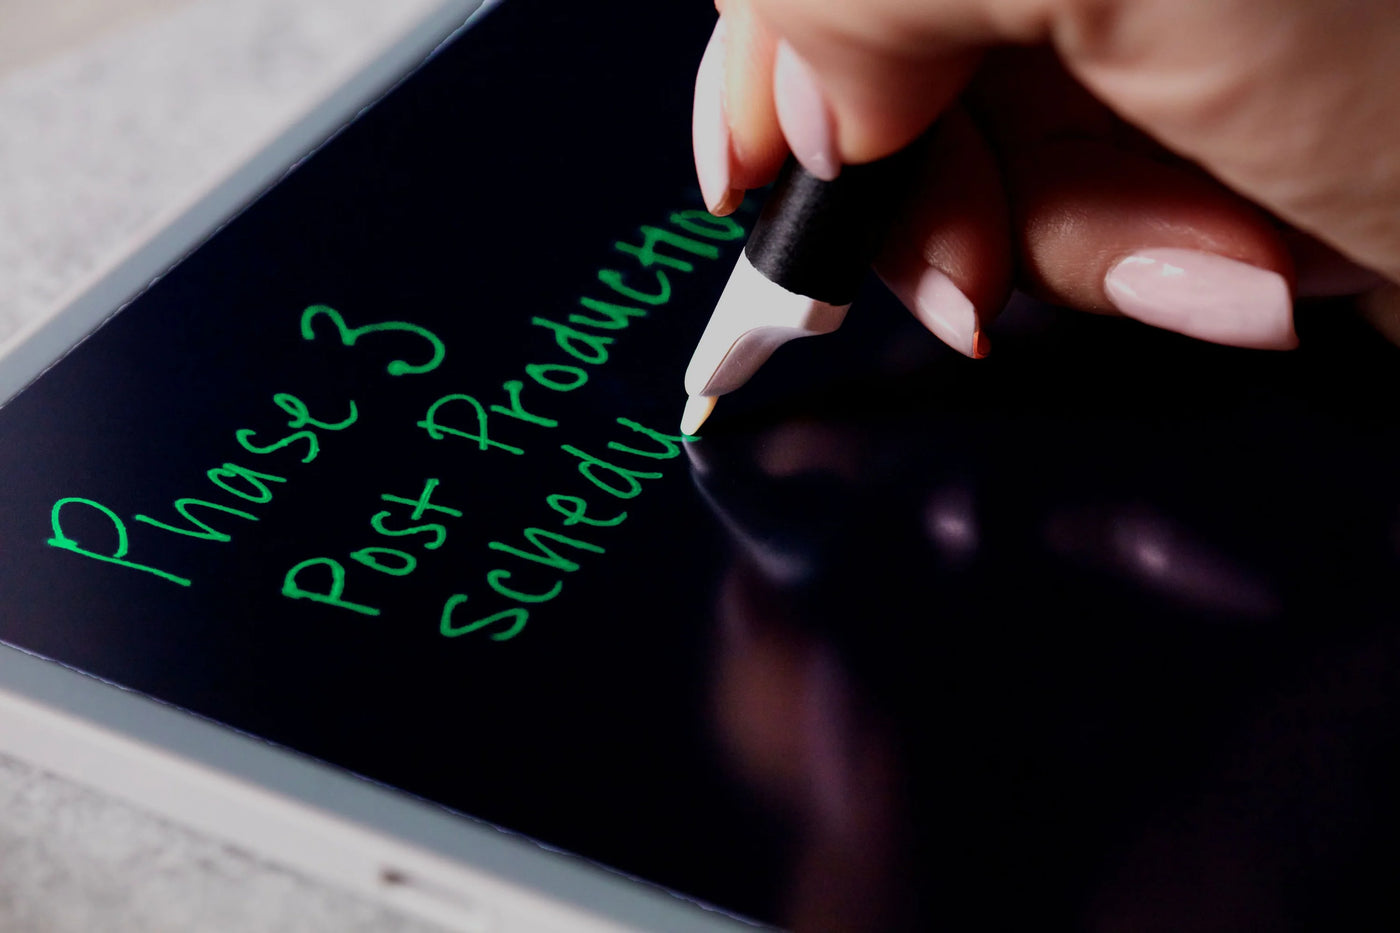 Phase 3
Post Productio
Schedu